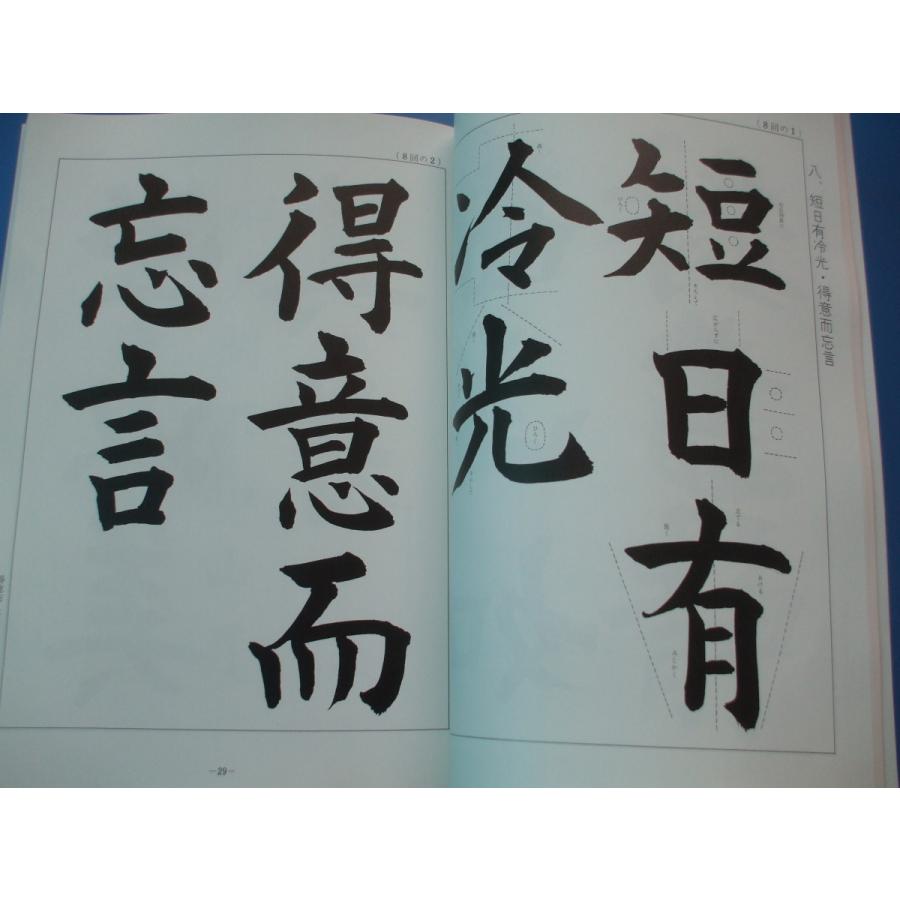 八、短日有冷光・得意而忘言
(8回の1)
短日有
冷光
ひろく
(8回の2)
得意而
忘言
—29—